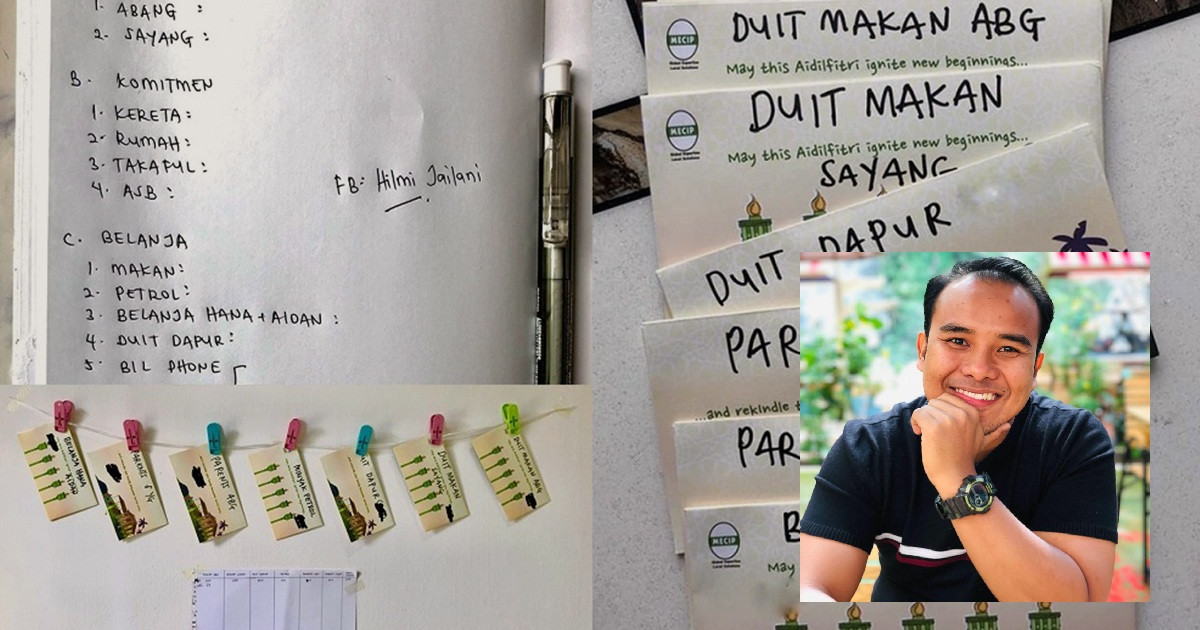 1. ABANG :
2. SAYANG :
B. KOMITMEN
1. KERETA:
2. RUMAH:
3. TAKAFUL:
4. ASB :
FB: Hilmi Jailani
C. BELANJA
1. MAKAN:
2. PETROL:
3. BELANJA HANA + AIDAN :
4. DUIT DAPUR:
5. BIL PHONE
BELANJA HANA
AIDAN
PARENTS ABG
MINYAK PETROL
DUIT DAPUR
DUIT MAKAN
SAYANG
DUIT MAKAN ABG
MECIP
Global Expertise
Local Solutions
DUIT MAKAN ABG
May this Aidilfitri ignite new beginnings...
MECIP
Global Expertise
Local Solutions
DUIT MAKAN
May this Aidilfitri ignite new beginnings...
SAYANG
DUIT DAPUR
PAR
...and rekindle
PAR
MECIP
Global Expertise
Local Solutions
B
May